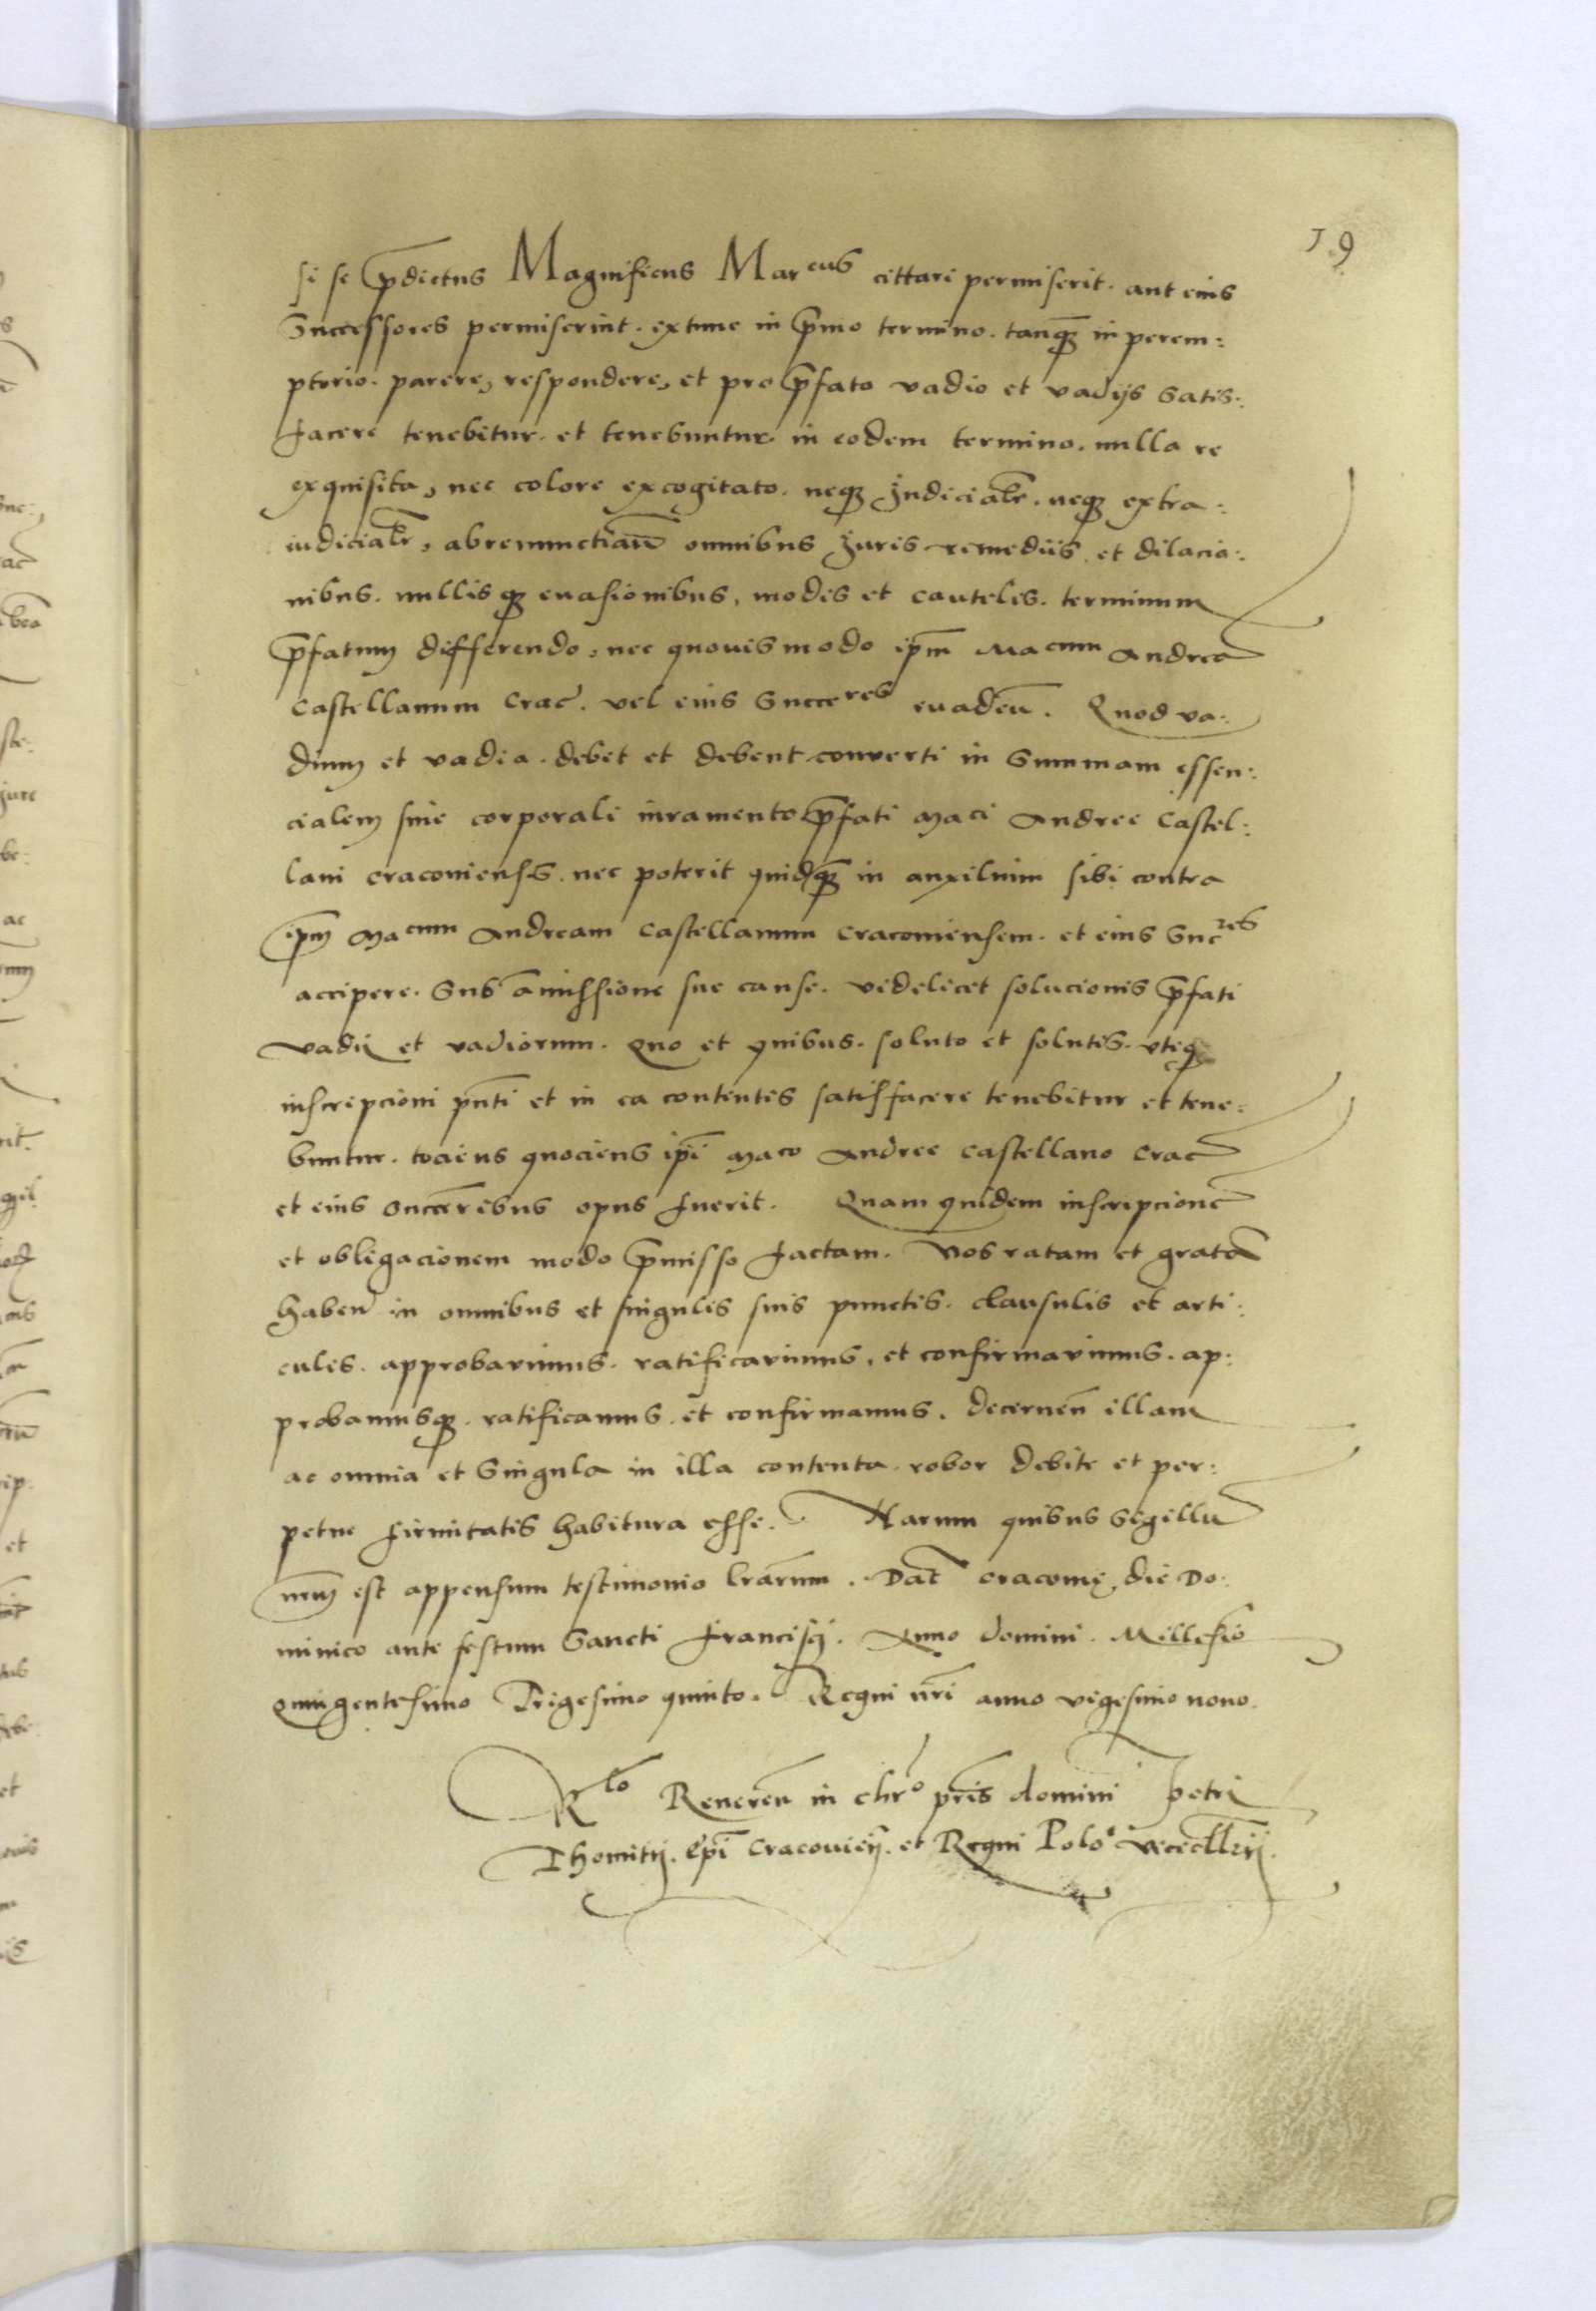 19
si se p̄dictus Magnificus Marcus cittari permiserit. aut eius
Successores permiserint. extunc in p̄mo termino. tanq̄ in perem:
ptorio. parere, respondere, et pro p̄fato vadio et vadijs Satis:
facere tenebitur. et tenebuntur. in eodem termino. nulla re
exquisita, nec colore excogitato. neq; Judicialr̄. neq; extra:
iudicialr̄, abrenunctiaн̄ omnibus Juris remediis. et dilacio:
nibus. nullisq; euasionibus, modis et cautelis. terminum
p̄fatum differendo, nec quouismodo ip̄m Macum Andreā
Castellanum Crac̄. vel eius Succeres euadeн̄. Quod va:
dium et vadia. debet et debent converti in Summam essen:
cialem sine corporali iuramento p̄fati Maci Andree Castel:
lani Cracoviensis. nec poterit quidq̄ in auxilium sibi contra
ip̄m Macum Andream Castellanum Cracoviensem. et eius Sucres
accipere. Sub amissione sue cause. videlicet solucionis p̄fati
vadii et vadiorum. Quo et quibus. soluto et solutis. vteq;
inscripcioni pn̄ti et in ea contentis satisfacere tenebitur et tene:
buntur. tociens quociens ip̄i Maco Andree Castellano Crac̄
et eius Succ̄ribus opus fuerit. Quam quidem inscripcionē
et obligacionem modo p̄misso factam. Nos ratam et gratā
haben̄ in omnibus et singulis suis punctis. clausulis et arti:
culis. approbavimus. ratificavimus. et confirmavimus. ap:
probamusq;. ratificamus. et confirmamus. decernen̄ illam
ac omnia et Singula in illa contenta. robor debite et per:
petue firmitatis habitura esse. Harum quibus Sigillū
nr̄m est appensum testimonio lr̄arum. Dat̄ Cracovię, die Do:
minico ante festum Sancti Francisci. Anno domini. Millesio
Quingentesimo Trigesimo quinto. Regni nr̄i anno vigesimo nono.
Rlo Reueren̄ in chr̄o pr̄is domini Petri
Thomitij. Ep̄i Cracovien̄. et Regni Polo. Vicecllrij.